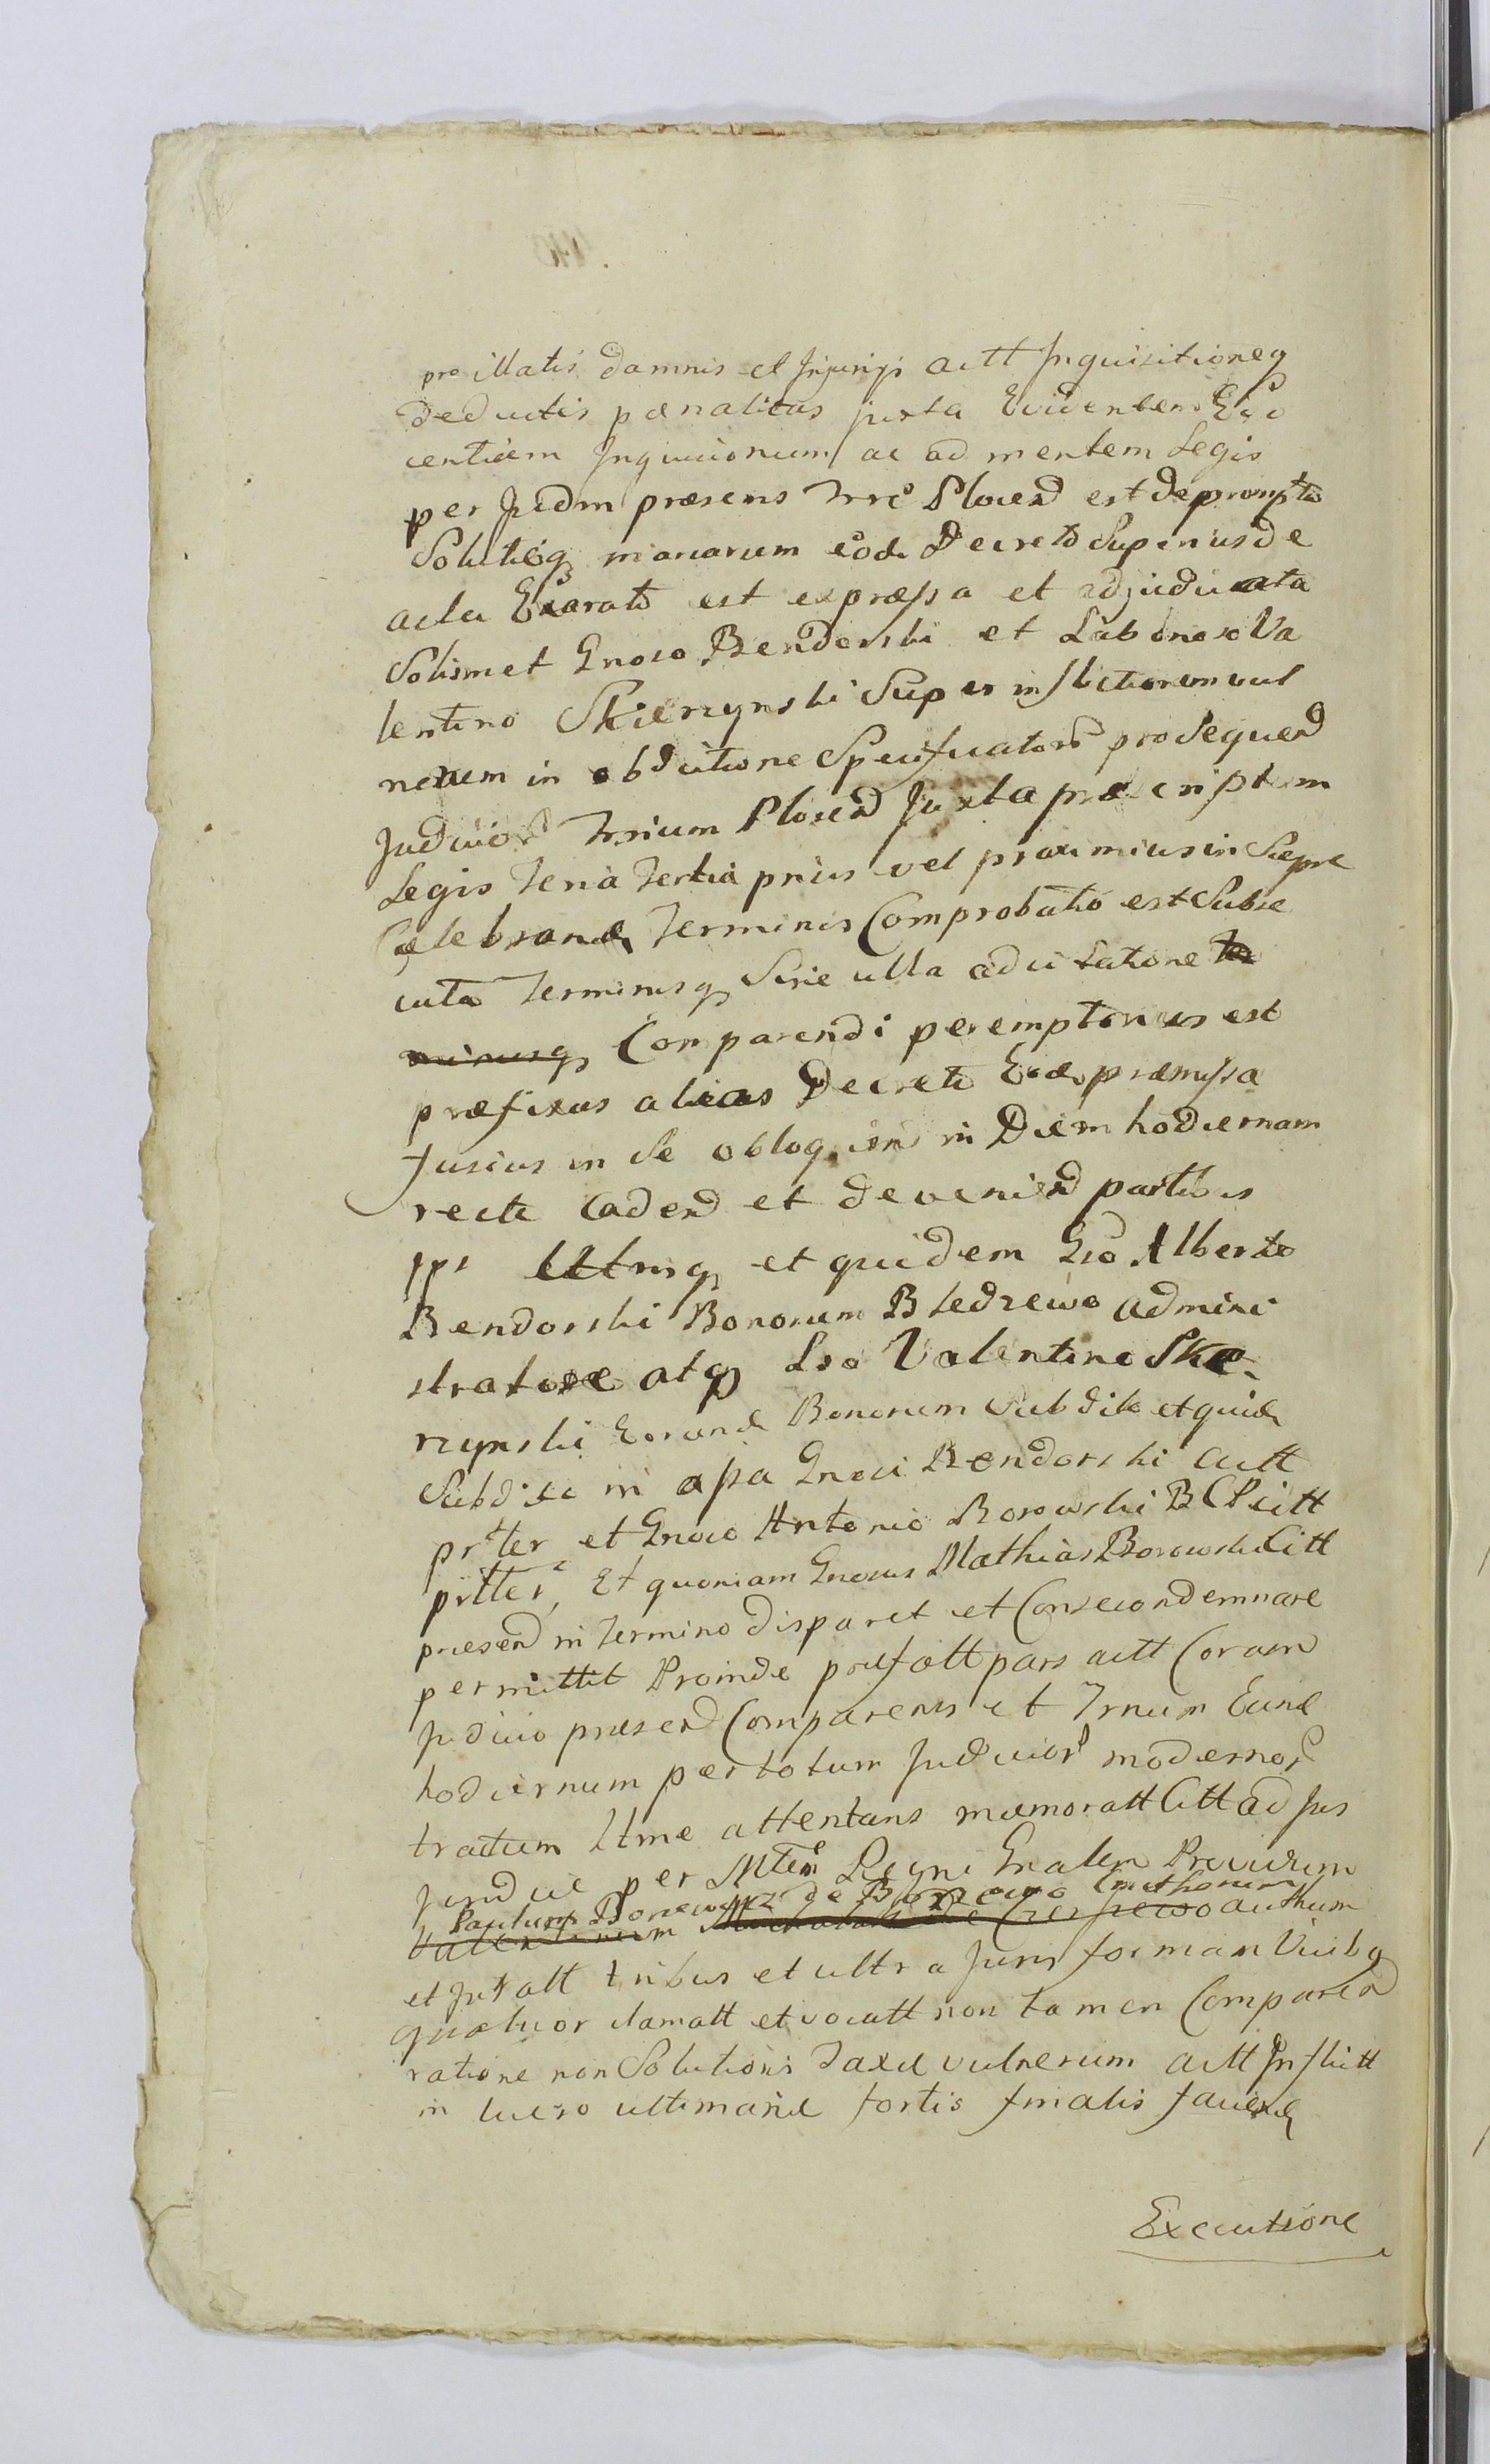 pro illatis damnis et Injurijs actt Inquisitioneq
deductis poenalitas juxta Evidentem Evi
centiam Inquicionum ac ad mentem Legis
per Judm praesens Trre Plocen est deprompta
Solutioq marcarum eode Decreto Superius de
acta Exarato est expraessa et adjudicata
Solismet Gnoso Bendorski et Laborioso Va
lentino Skierzynski Super inflictionem vul
nerum in obductione Specificator prosequend
Judicior Trrium Plocen Juxta praescriptum
Legis Feria Tertia prius vel proximius in Siepre
Caelebrand Terminis Comprobatio est Subse
cuta Terminusq Sine ulla adcitatione Ter
minusq Comparendi peremptorius est
praefixus alias Decreto Eode praemissa
fusius in Se obloquen in Diem hodiernam
recte Cadend et devenien partibus
ips Utrisq et quidem Gso Alberto
Bendorski Bonorum Bledzewo admini
stratore atq Lso Valentino Skie
rzynski Eorund Bonorum Subdito et quide
Subdito in assa Gnosi Bendorski actt
prter et Gnoso Antonio Borowski BCP citt
prtter, Et quoniam Gnosus Mathias Borowski Citt
praesend in Termino disparet et Se condemnare
permittit Proinde praefatt pars actt Coram
Judicio praesend Comparens et Trnum Eund
hodiernum per totum Judicior modernor
tractum Ltme attentans memoratt Citt ad Jus
Jundice per Mtem Regni Gnalem Provirum
Paulum Bonewicz de Borzewo Smethorium
Valentinum de Czerniewo authum
et Jur att tribus et ultra Juris formam Vicibq
quatuor clamatt et vocatt non tamen Comparen
ratione non Solutionis Taxae vulnerum actt Inflictt
in lucro ultimariae fortis finalis faciend
Executione